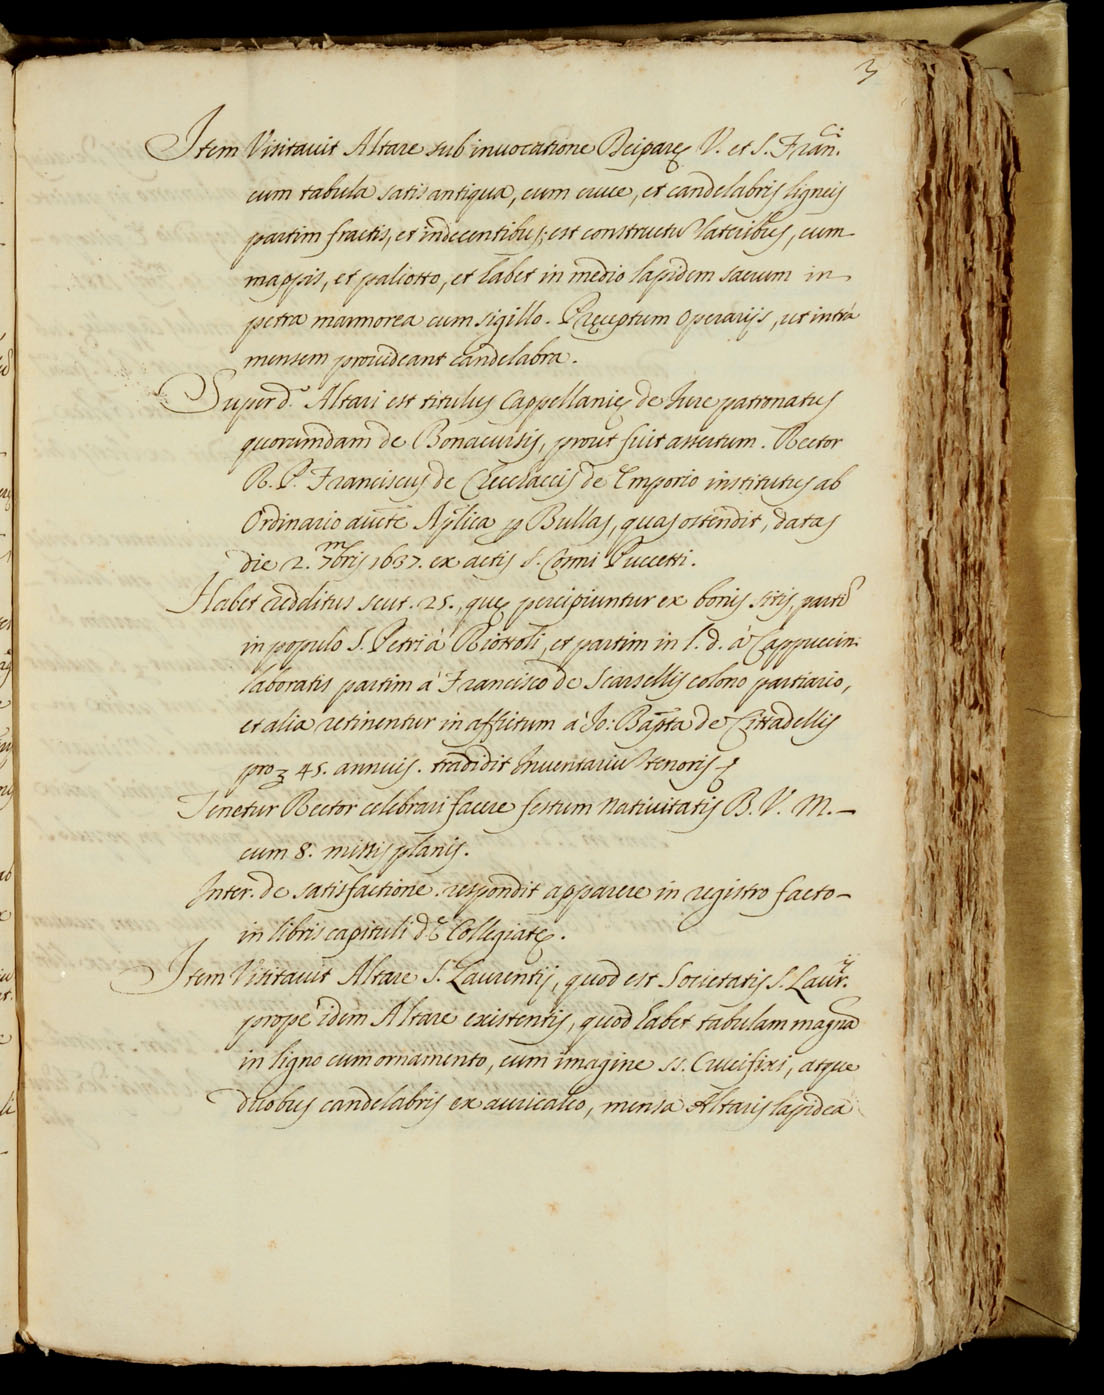 3
Item Visitauit Altare sub inuocatione Deiparę V. et S. Fran.ci
cum tabula satis antiqua, cum cruce, et candelabris ligneis
partim fractis, et indecentibus, est constructũ lateribus, cum
mappis, et paliotto, et habet in medio lapidem sacrum in
petra marmorea cum sigillo. Pręceptum Operarijs, ut intrà
mensem prouideant candelabra.
Super d.o Altari est titulus Cappellanię de Iure patronatus
quorumdam de Bonacursis, prout fuit assertum. Rector
R. P. Franciscus de de Emporio institutus ab
Ordinario aucte Aplica p Bullas, quas ostendit, datas
die 2. 7mbris 1637. ex actis S. Cosmi Puccetti.
Habet redditus scut. 25., quę percipiuntur ex bonis sitis, partĩ
in populo S. Petri à Riottoli, et partim in l. d. à Cappuccin:
laboratis partim à Francisco de Scarsellis colono partiario,
et alia retinentur in affictum à Io: Bapta de Cittadellis
pro 45. annuis. tradidit Inuentariũ tenoris
Tenetur Rector celebrari facere festum Natiuitatis B. V. M. —
cum 8. missis planis.
Inter. de satisfactione. respondit apparere in registro facto —
in libris capituli d.ę Collegiatę.
Item Visitauit Altare S. Laurentij, quod est Societatis S. Laur.ij
prope idem Altare existentis, quod habet tabulam magnã
in ligno cum ornamento, cum imagine ss. Crucifixi, atque
duobus candelabris ex auricalco, mensa Altaris lapidea